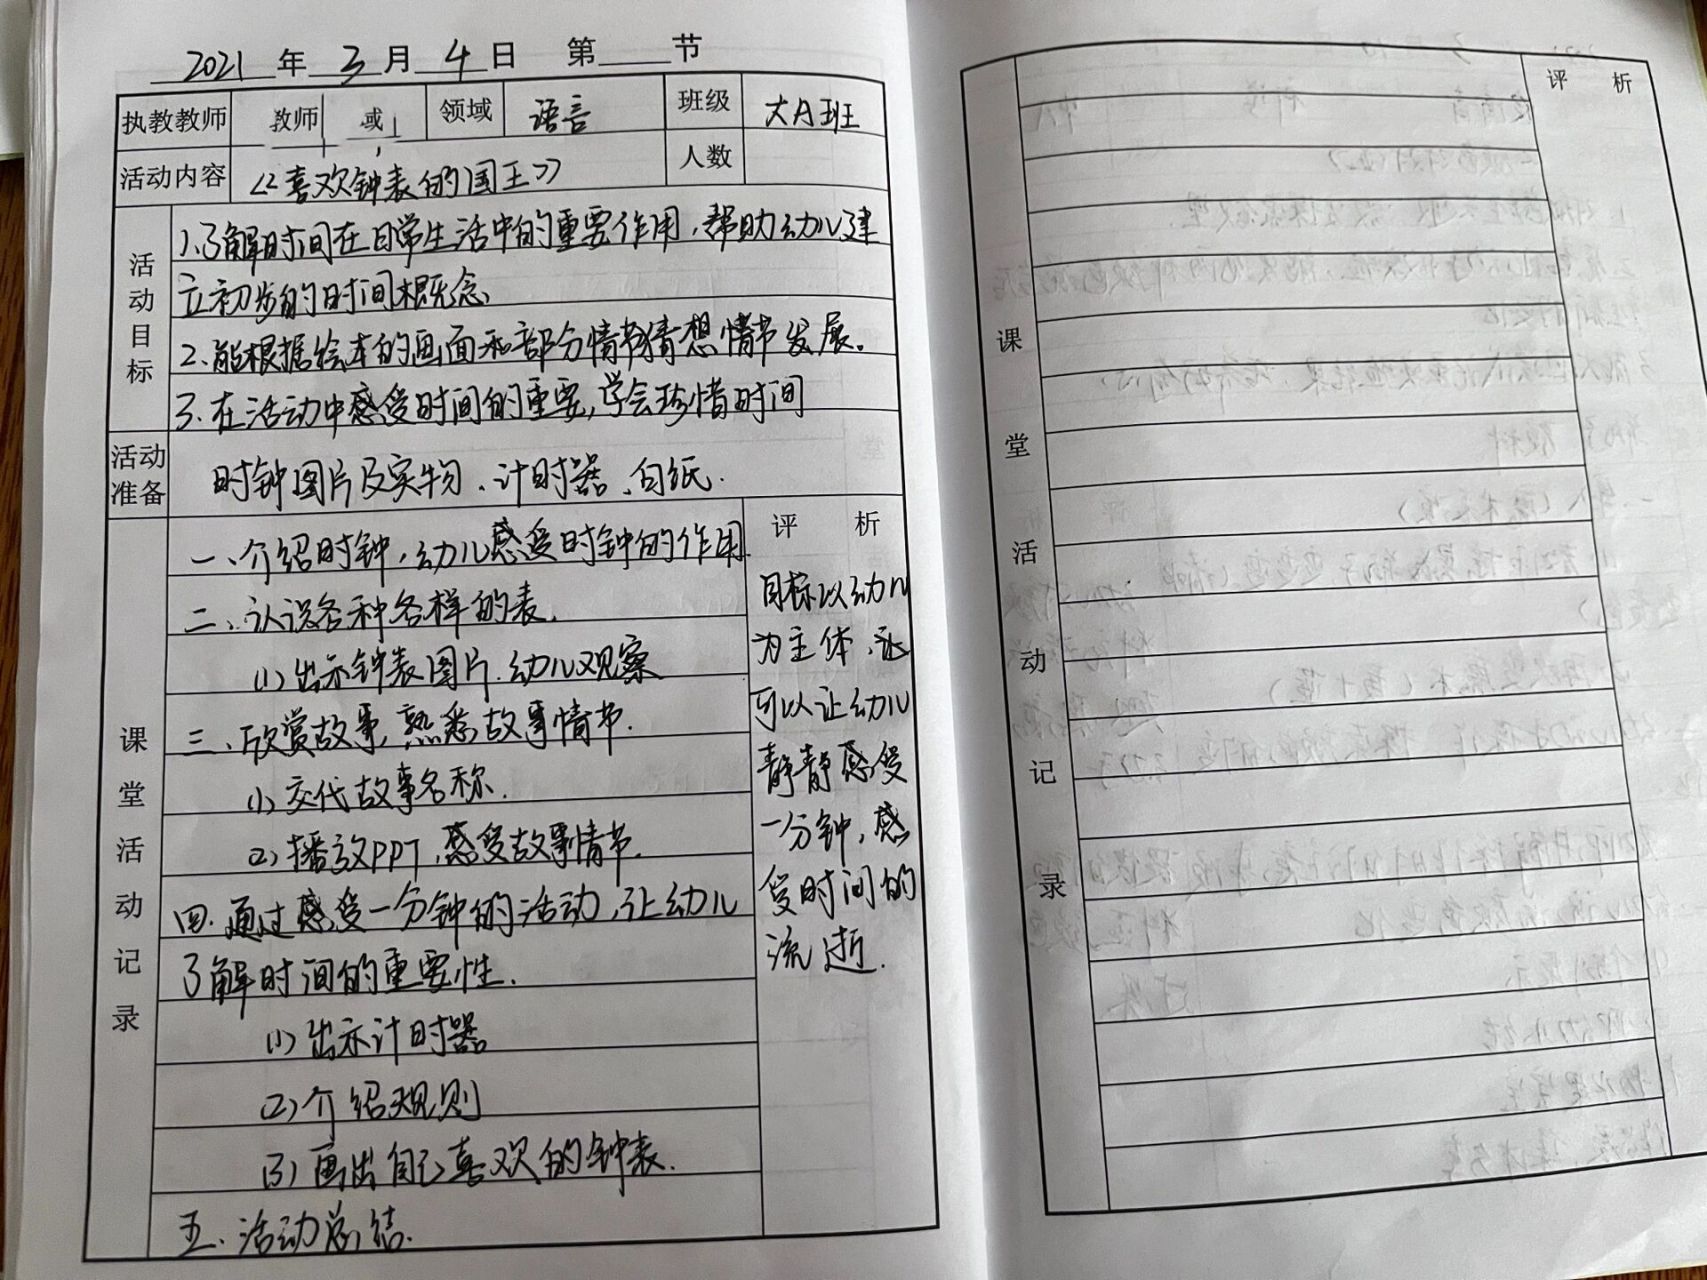 2021年3月4日 第 节
执教教师 教师 或 领域 语言 班级 大A班
活动内容 《喜欢钟表的国王》 人数
活动目标
1、了解时间在日常生活中的重要作用，帮助幼儿建
立初步的时间概念、
2、能根据绘本的画面和部分情节猜想情节发展。
3、在活动中感受时间的重要，学会珍惜时间
活动准备
时钟图片及实物、计时器、白纸.
课堂活动记录
一、介绍时钟，幼儿感受时钟的作用
二、认识各种各样的表.
(1)出示钟表图片.幼儿观察
三、欣赏故事,熟悉故事情节.
(1)交代故事名称.
(2)播放PPT,感受故事情节.
四.通过感受一分钟的活动,让幼儿
了解时间的重要性.
(1)出示计时器
(2)介绍规则
(3)画出自己喜欢的钟表.
五.活动总结.
评 析
目标以幼儿
为主体,还
可以让幼儿
静静感受
一分钟,感
受时间的
流逝.
课堂活动记录
评 析